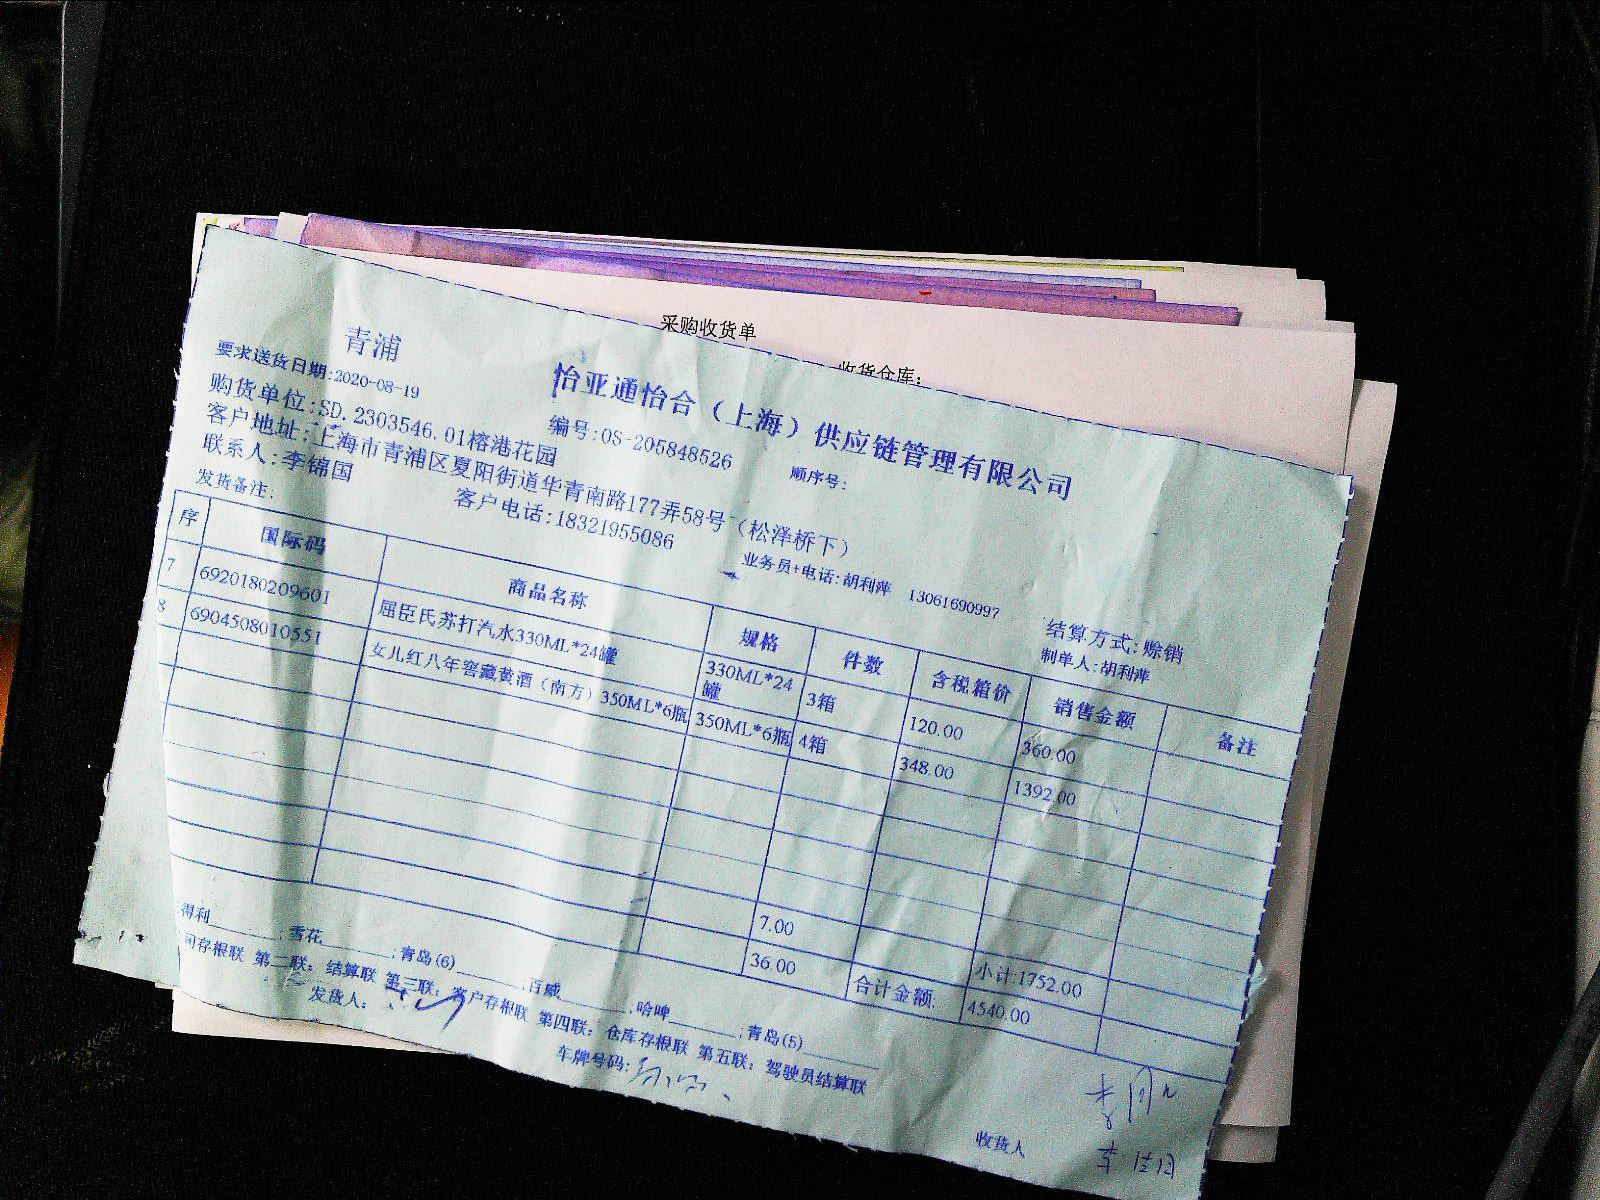 采购收货单
收货仓库:
青浦
怡亚通怡合（上海）供应链管理有限公司
要求送货日期:2020-08-19
编号:OS-205848526
顺序号:
购货单位:SD.2303546.01榕港花园
客户地址:上海市青浦区夏阳街道华青南路177弄58号（松泽桥下）
联系人:李锦国
客户电话:18321955086
业务员+电话:胡利萍 13061690997
结算方式:赊销
发货备注:
制单人:胡利萍
序 国际码 商品名称 规格 件数 含税箱价 销售金额 备注
7 6920180209601 屈臣氏苏打汽水330ML*24罐 330ML*24罐 3箱 120.00 360.00
8 6904508010551 女儿红八年窖藏黄酒（南方）350ML*6瓶 350ML*6瓶 4箱 348.00 1392.00
7.00 小计:1752.00
36.00 合计金额: 4540.00
得利______;雪花______;青岛(6)______;百威______;哈啤______;青岛(5)______
司存根联 第二联：结算联 第三联：客户存根联 第四联：仓库存根联 第五联：驾驶员结算联
发货人:
车牌号码:
收货人